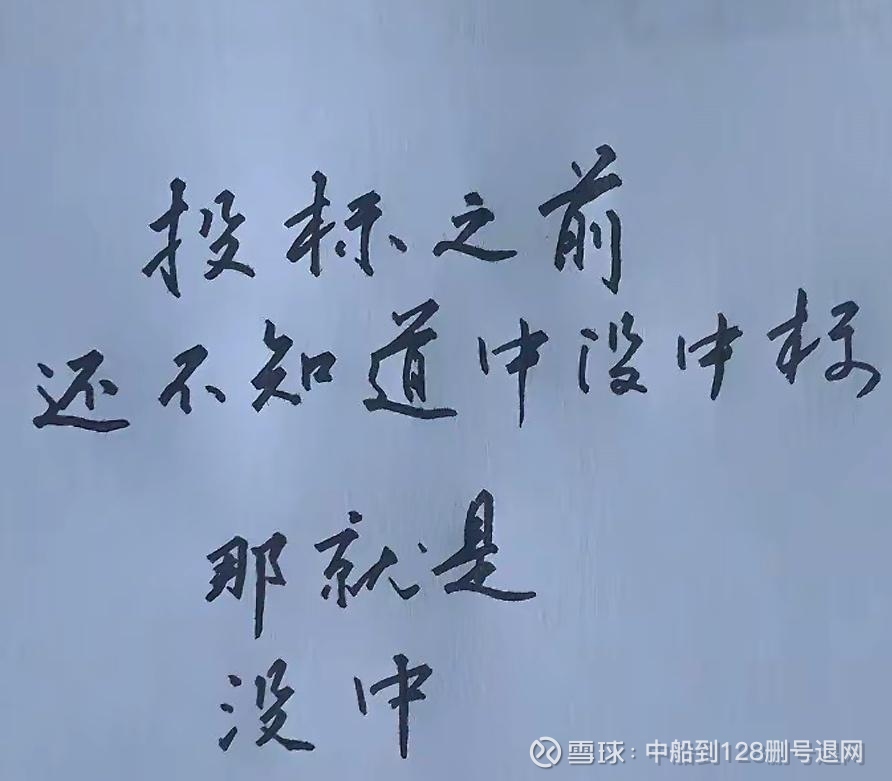 投标之前
还不知道中没中标
那就是
没中
雪球：中船到128删号退网